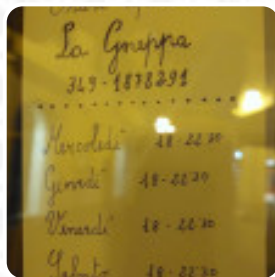 La Gneppa
349-1878291
Mercoledì 18-22 30
Giovedì 18-22 30
Venerdì 18-22 30
Sabato 18-22 30